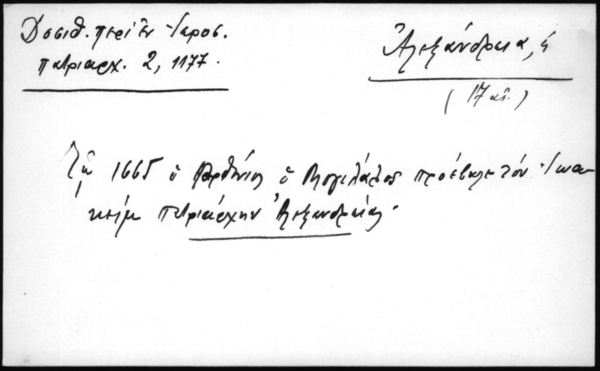 Δοσιθ. περί ἐν Ἱεροσ.
πατριαρχ. 2, 1177.
Ἀλεξάνδρεια, ἡ
(17 αἰ.)
Τῷ 1665 ὁ Παρθένιος ὁ προέβαλε τόν Ἰωα-
κείμ πατριάρχην Ἀλεξανδρείας.